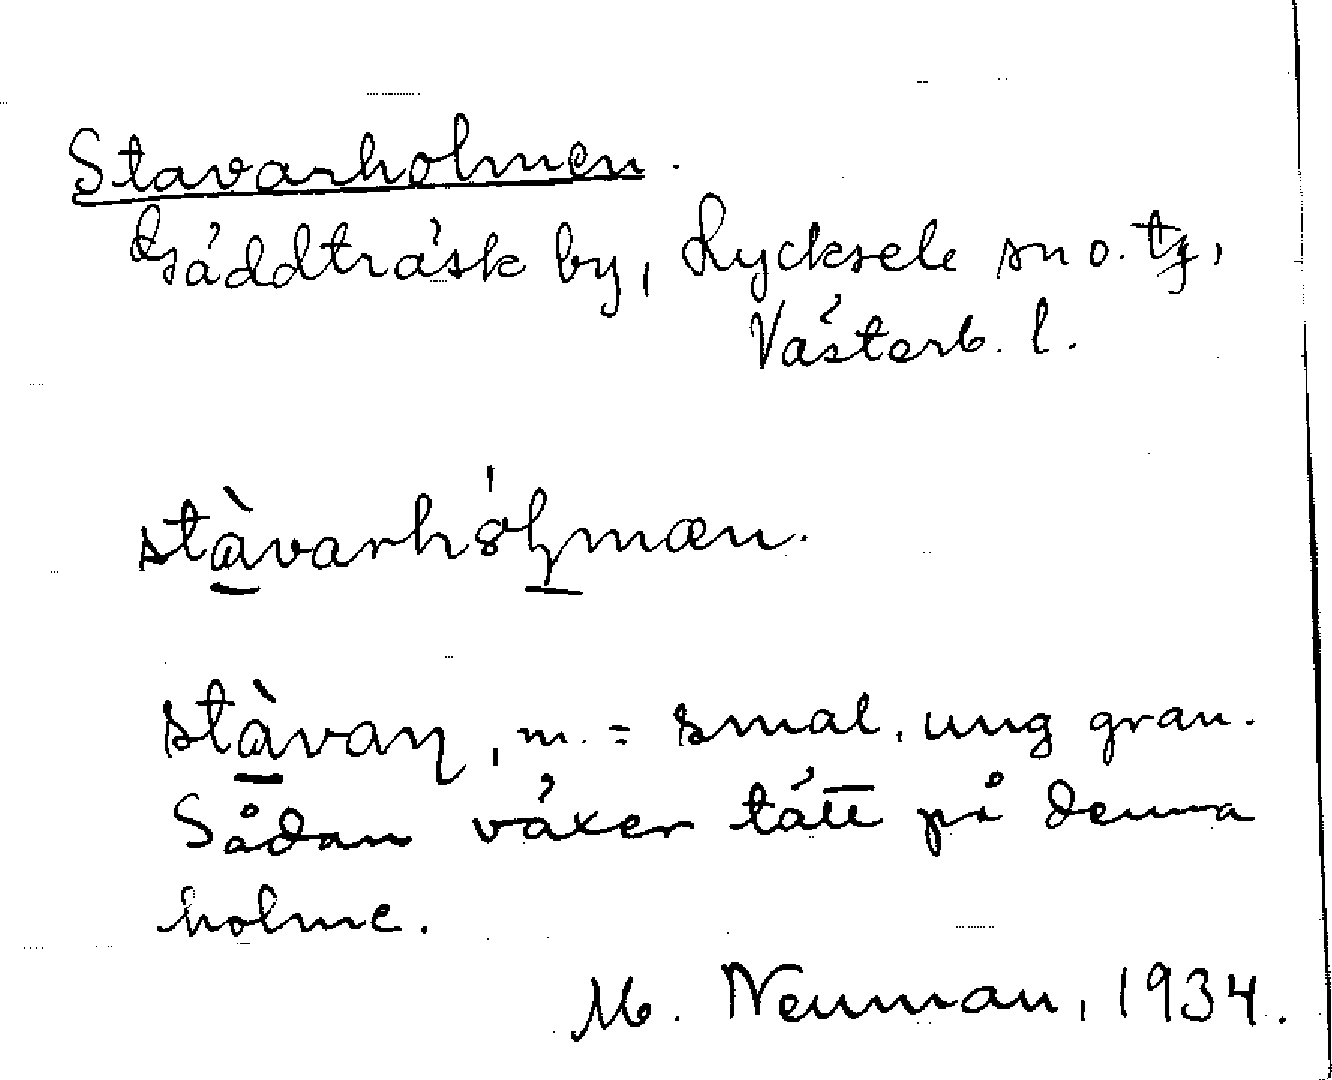 Stavarholmen.
Gäddträsk by, Lycksele sn o. tg,
Västerb. l.
stàvarhólmæn.
stàvaɳ, m. = smal, ung gran.
Sådan växer tätt på denna
holme.
M. Neuman, 1934.